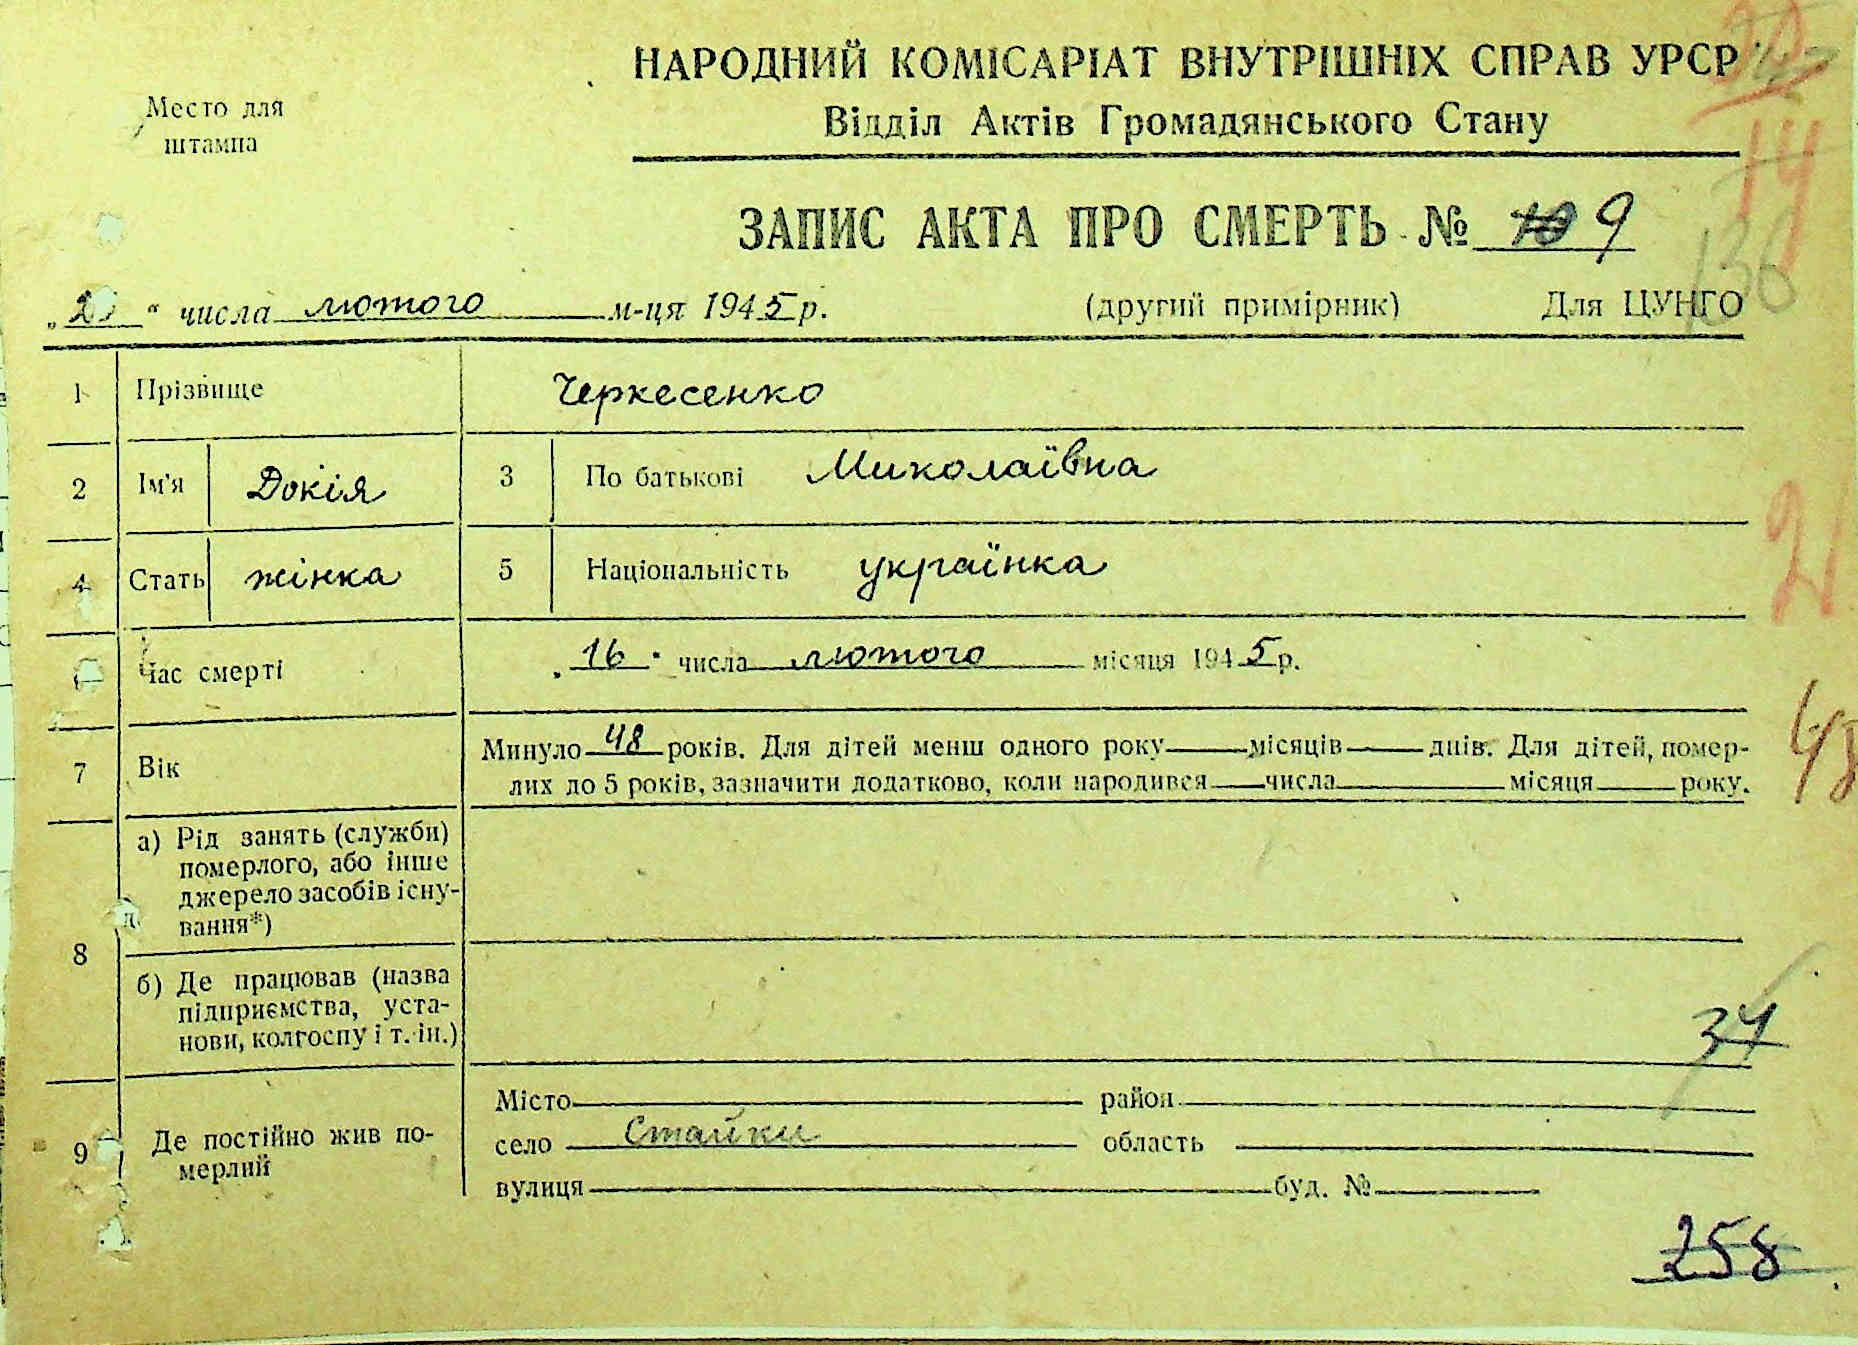 Место для
штампа
НАРОДНИЙ КОМІСАРІАТ ВНУТРІШНІХ СПРАВ УРСР
Відділ Актів Громадянського Стану
ЗАПИС АКТА ПРО СМЕРТЬ № 10 9
14
136
числа лютого м-ця 1945 р.
(другий примірник) Для ЦУНГО
1 Прізвище Черкесенко
2 Ім'я Докія 3 По батькові Миколаївна
21
4 Стать жінка 5 Національність українка
Час смерті „16" числа лютого місяця 1945 р.
48
7 Вік Минуло 48 років. Для дітей менш одного року місяців днів. Для дітей, помер-
лих до 5 років, зазначити додатково, коли народився числа місяця року.
8 а) Рід занять (служби)
померлого, або інше
джерело засобів існу-
вання*)
б) Де працював (назва
підприємства, уста-
нови, колгоспу і т. ін.)
34
9 Де постійно жив по-
мерлий
Місто район
село Стайки область
вулиця буд. №
258